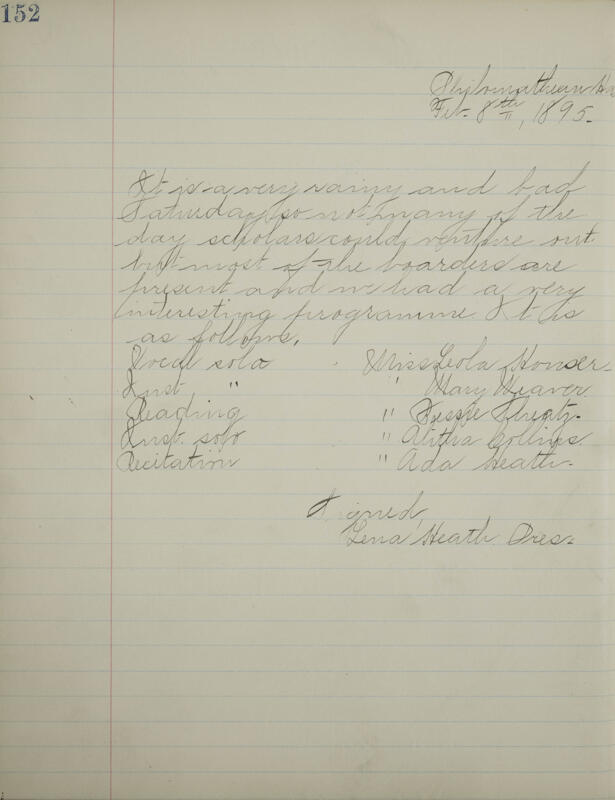 152
Philomathean
Feb. 8th, 1895.
It is a very rainy and bad
Saturday, so not many of the
day scholars could venture out
but most of the boarders are
present and we had a very
interesting programme It is
as follows.
Vocal solo Miss Leola Houser
Inst " " Mary Weaver
Reading " Jessie
Inst. solo " Alitha Collins
Recitation " Ada Heath.
Signed,
Lena Heath Pres.